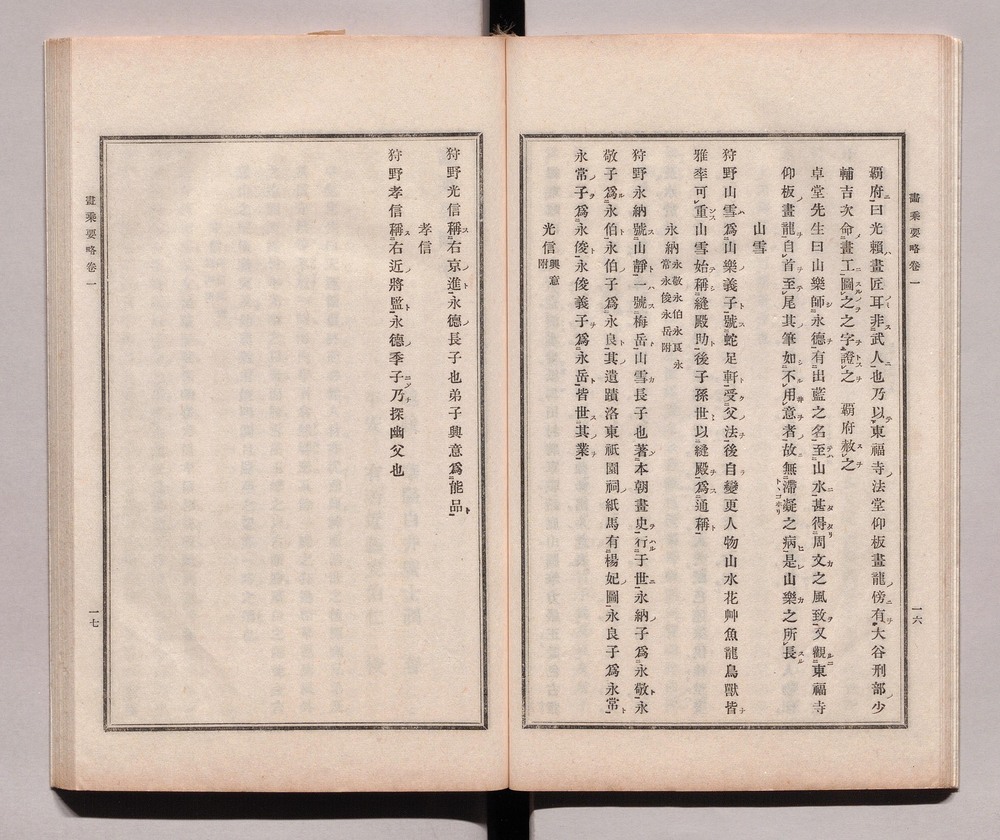 畫乘要略卷一
一六
覇府曰光賴畫匠耳非武人也乃以東福寺法堂仰板畫龍傍有大谷刑部少
輔吉次命畫工圖之之字證之 覇府赦之
卓堂先生曰山樂師永德有出藍之名至山水甚得周文之風致又觀東福寺
仰板畫龍自首至尾其筆如不用意者故無滯凝之病是山樂之所長
山雪
狩野山雪爲山樂義子號蛇足軒受父法後自變更人物山水花艸魚龍鳥獸皆
雅率可重山雪始稱縫殿助後子孫世以縫殿爲通稱
永納 永敬永伯永良永常永俊永岳附
狩野永納號山靜一號梅岳山雪長子也著本朝畫史行于世永納子爲永敬永
敬子爲永伯永伯子爲永良其遺蹟洛東祇園祠紙馬有楊妃圖永良子爲永常
永常子爲永俊永俊義子爲永岳皆世其業
光信 興意附
狩野光信稱右京進永德長子也弟子興意爲能品
孝信
狩野孝信稱右近將監永德季子乃探幽父也
畫乘要略卷一
一七